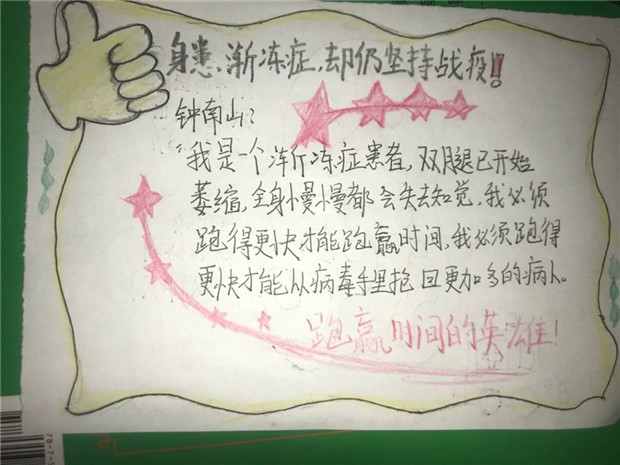 身患渐冻症,却仍坚持战疫!
钟南山:
“我是一个渐冻症患者,双腿已开始
萎缩,全身慢慢都会失去知觉,我必须
跑得更快才能跑赢时间,我必须跑得
更快才能从病毒手里抢回更加多的病人。
跑赢时间的英雄!
78-7-